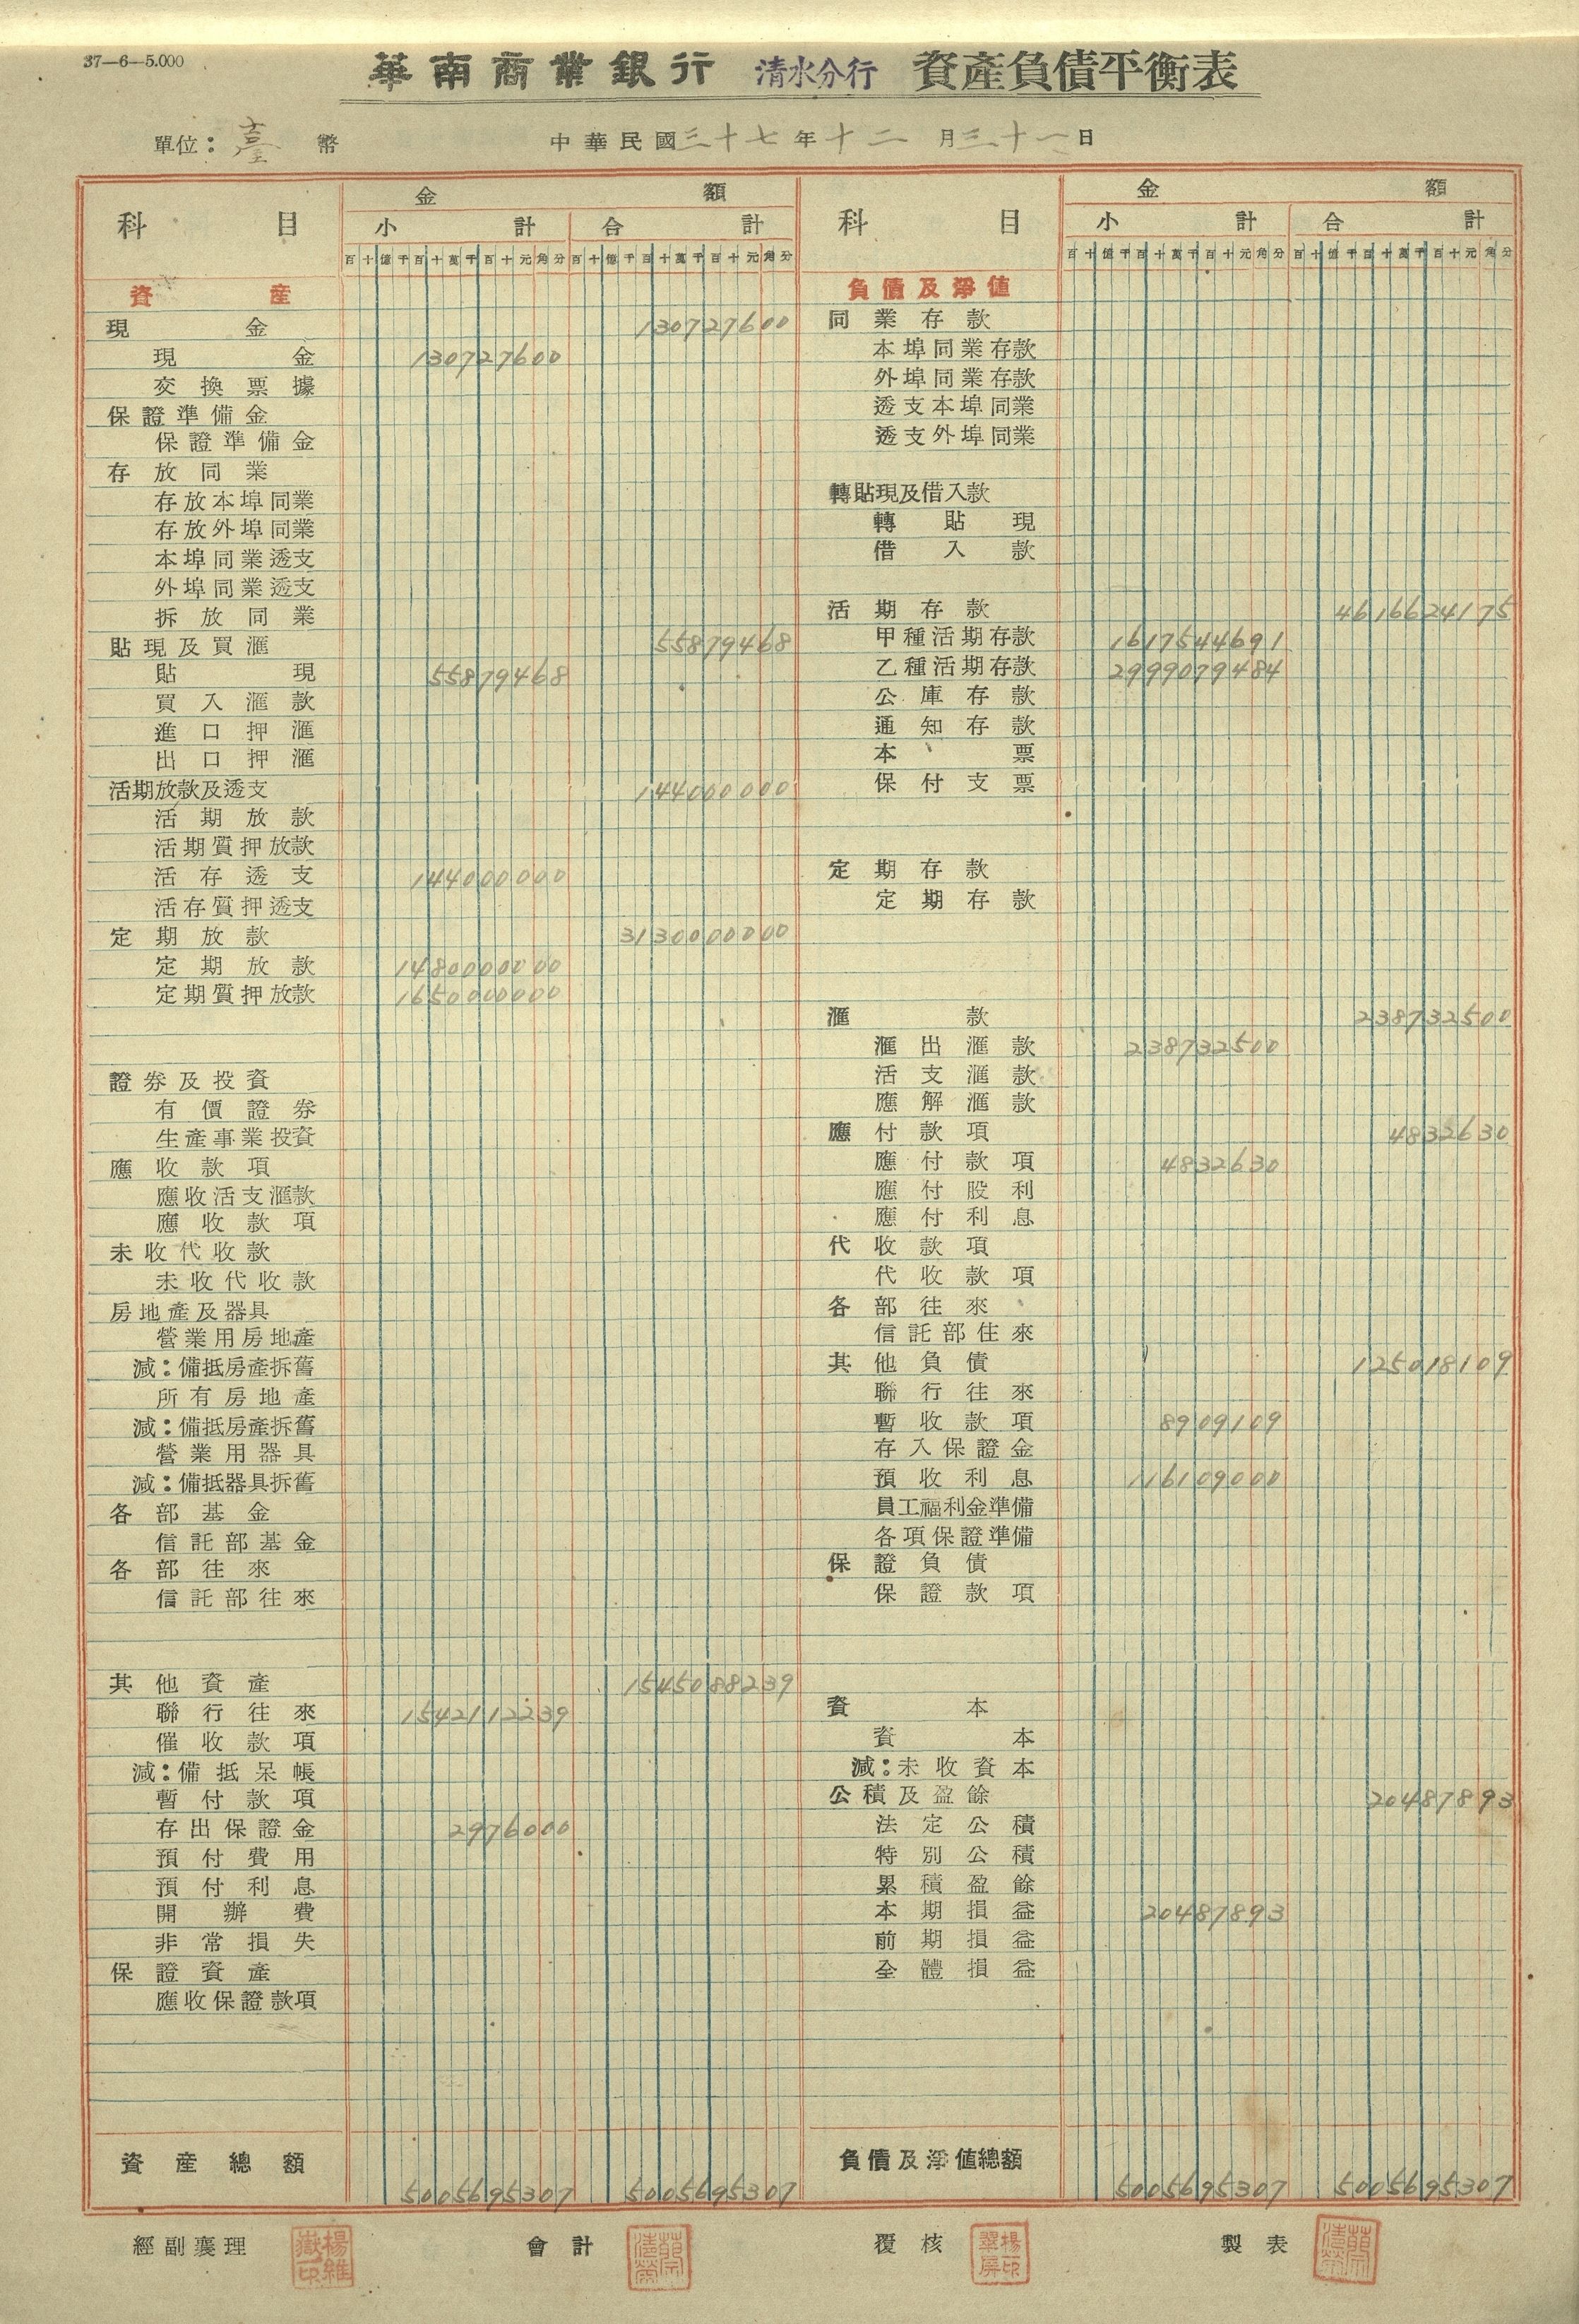 37—6—5.000
華南商業銀行 清水分行 資產負債平衡表
單位：臺幣 中華民國三十七年十二月三十一日
科目 金額
小計 合計
百十億千百十萬千百十元角分 百十億千百十萬千百十元角分
資產
現金 130727600
現金 130727600
交換票據
保證準備金
保證準備金
存放同業
存放本埠同業
存放外埠同業
本埠同業透支
外埠同業透支
拆放同業
貼現及買滙 55879468
貼現 55879468
買入滙款
進口押滙
出口押滙
活期放款及透支 144000000
活期放款
活期質押放款
活存透支 144000000
活存質押透支
定期放款 3130000000
定期放款 1480000000
定期質押放款 1650000000
證券及投資
有價證券
生產事業投資
應收款項
應收活支滙款
應收款項
未收代收款
未收代收款
房地產及器具
營業用房地產
減：備抵房產拆舊
所有房地產
減：備抵房產拆舊
營業用器具
減：備抵器具拆舊
各部基金
信託部基金
各部往來
信託部往來
其他資產 1545088239
聯行往來 1542112239
催收款項
減：備抵呆帳
暫付款項
存出保證金 2976000
預付費用
預付利息
開辦費
非常損失
保證資產
應收保證款項
資產總額 5005695307 5005695307
科目 金額
小計 合計
百十億千百十萬千百十元角分 百十億千百十萬千百十元角分
負債及淨值
同業存款
本埠同業存款
外埠同業存款
透支本埠同業
透支外埠同業
轉貼現及借入款
轉貼現
借入款
活期存款 4616624175
甲種活期存款 1617544691
乙種活期存款 2999079484
公庫存款
通知存款
本票
保付支票
定期存款
定期存款
滙款 238732500
滙出滙款 238732500
活支滙款
應解滙款
應付款項 4832630
應付款項 4832630
應付股利
應付利息
代收款項
代收款項
各部往來
信託部往來
其他負債 125018109
聯行往來
暫收款項 8909109
存入保證金
預收利息 116109000
員工福利金準備
各項保證準備
保證負債
保證款項
資本
資本
減：未收資本
公積及盈餘 20487893
法定公積
特別公積
累積盈餘
本期損益 20487893
前期損益
全體損益
負債及淨值總額 5005695307 5005695307
經副襄理 會計 覆核 製表